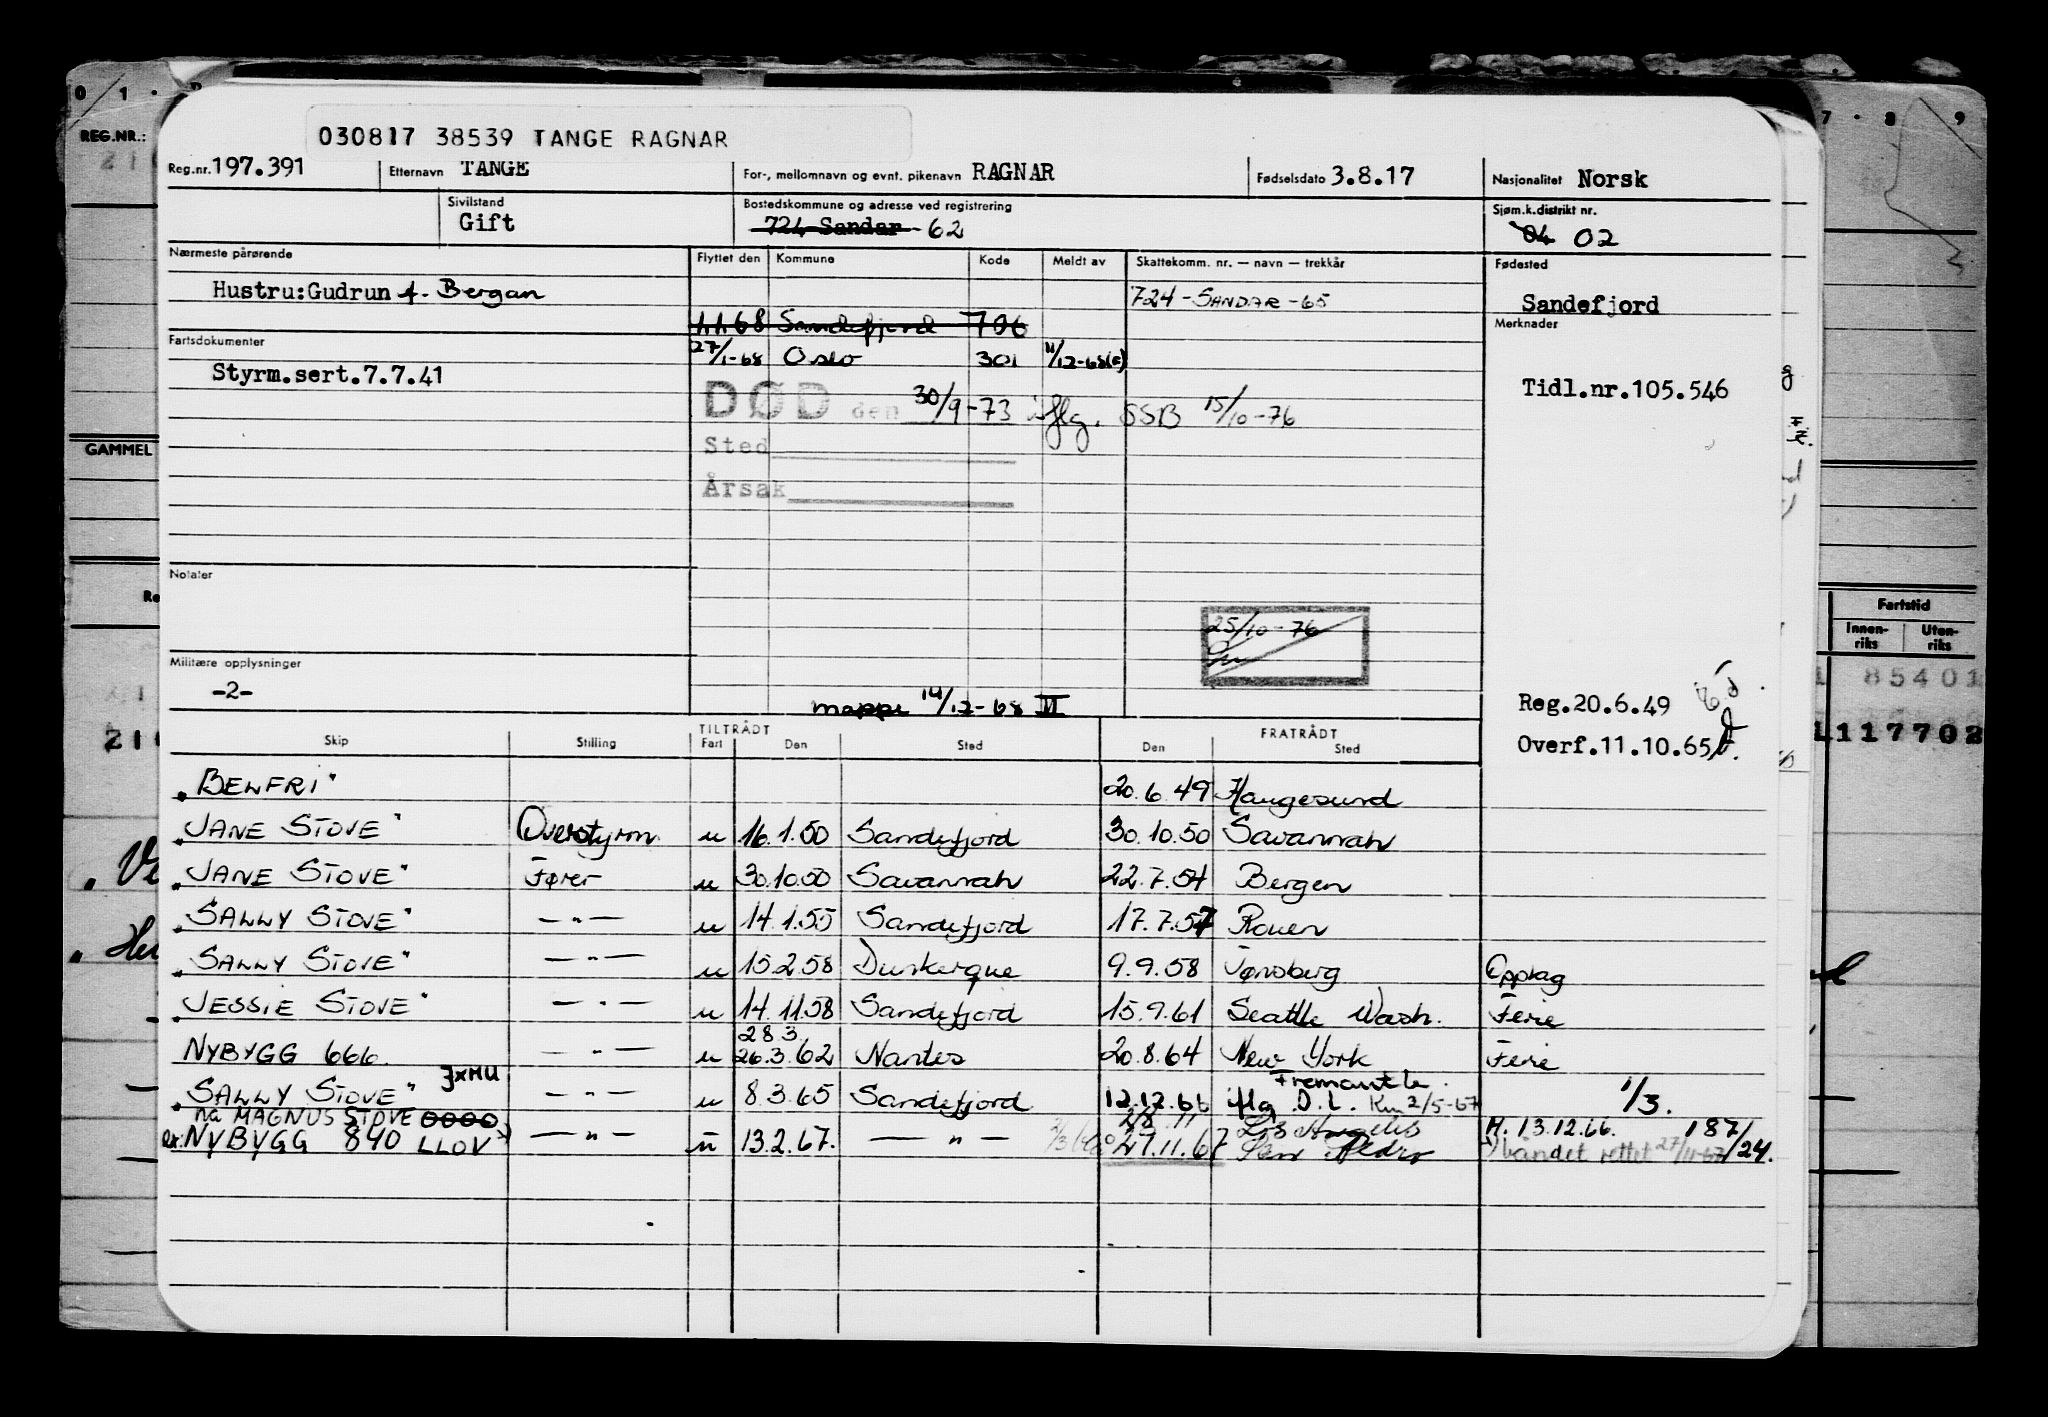 030817 38539 TANGE RAGNAR
Reg.nr. 197.391 Etternavn TANGE For-, mellomnavn og evnt. pikenavn RAGNAR Fødselsdato 3.8.17 Nasjonalitet Norsk
Sivilstand Gift Bostedskommune og adresse ved registrering 724 Sandar - 62 Sjøm.k.distrikt nr. 04 02
Nærmeste pårørende Flyttet den Kommune Kode Meldt av Skattekomm. nr. — navn — trekkår Fødested
Hustru:Gudrun f. Bergan 724 - SANDAR - 65 Sandefjord
1.1.68 Sandefjord 706 Merknader
Fartsdokumenter 27/1-68 Oslo 301 11/12-68
Styrm.sert.7.7.41 Tidl.nr.105.546
DØD den 30/9-73 iflg. SSB 15/10-76
Sted
Årsak
Notater
25/10-76
Militære opplysninger
-2-
mappe 14/12-68 II
Reg.20.6.49
Overf.11.10.65
Skip Stilling TILTRÅDT Fart Den Sted FRATRÅDT Den Sted
"BELFRI" 20.6.49 Haugesund
"JANE STOVE" Overstyrm. u 16.1.50 Sandefjord 30.10.50 Savannah
"JANE STOVE" Fører u 30.10.50 Savannah 22.7.54 Bergen
"SALLY STOVE" — " — u 14.1.55 Sandefjord 17.7.57 Rouen
"SALLY STOVE" — " — u 15.2.58 Dunkerque 9.9.58 Tønsberg Opplag
"JESSIE STOVE" — " — u 14.11.58 Sandefjord 15.9.61 Seattle Wash. Ferie
28.3.
NYBYGG 666. — " — u 26.3.62 Nantes 20.8.64 New York Ferie
JXMU Fremantle
"SALLY STOVE" — " — u 8.3.65 Sandefjord 12.12.66 iflg. D.L. 2/5-67 1/3.
nå MAGNUS STOVE OOOO Los Angeles H. 13.12.66. 187/24.
ex. NYBYGG 840 LLOV — " — u 13.2.67. — " — 27.11.67 San Pedro båndet rettet 27/11-67
REG.NR.:
GAMMEL
Fartstid
Innen-riks Uten-riks
85401
117702